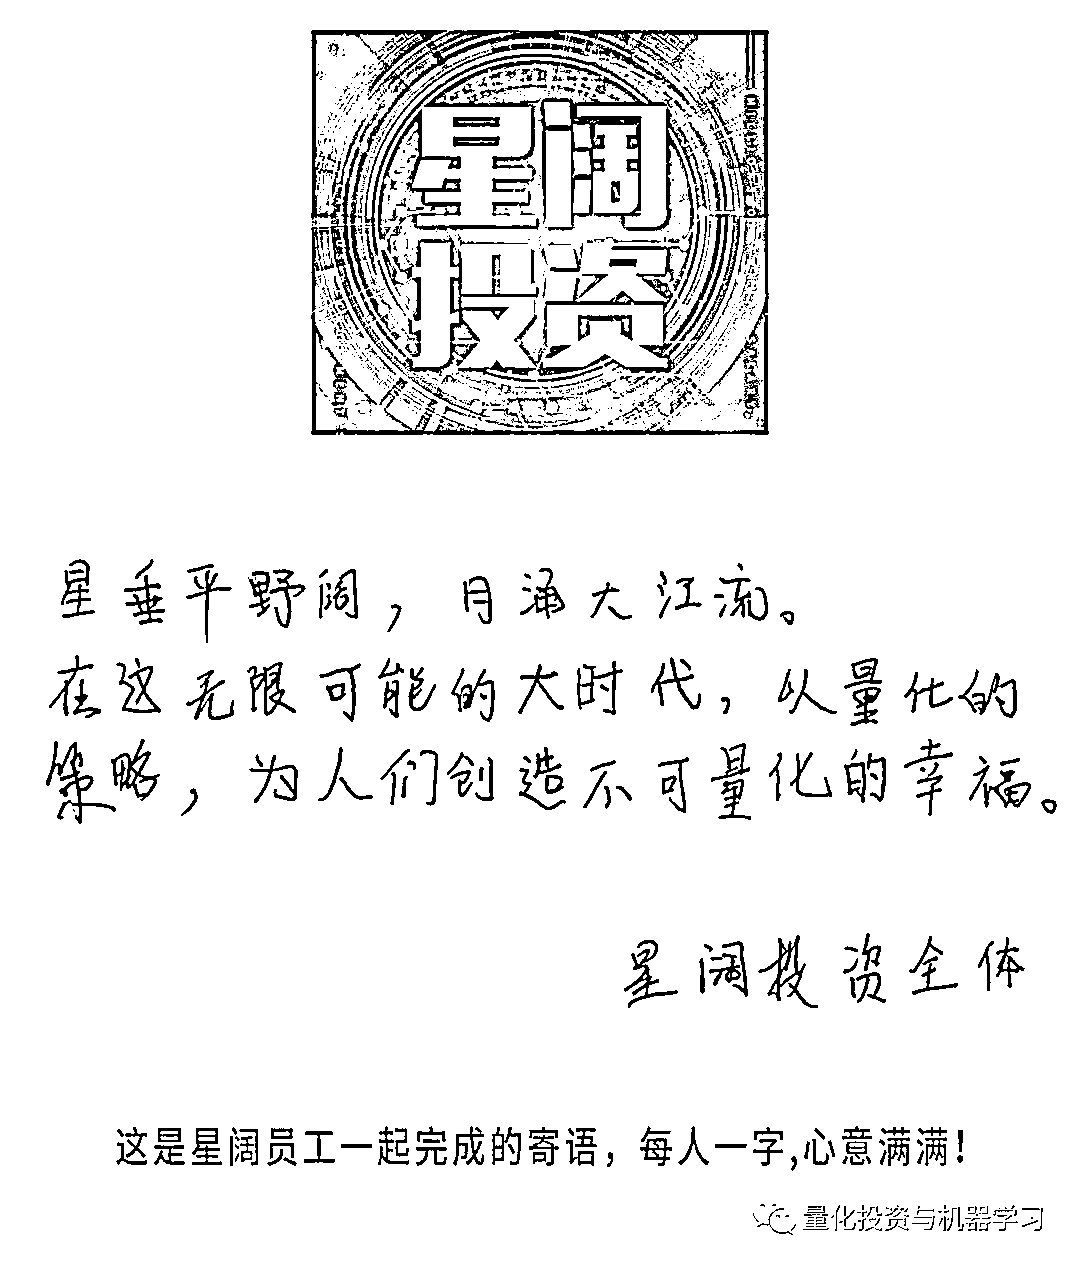 星阔
投资
星垂平野阔，月涌大江流。
在这无限可能的大时代，以量化的
策略，为人们创造不可量化的幸福。
星阔投资全体
这是星阔员工一起完成的寄语，每人一字,心意满满！
量化投资与机器学习